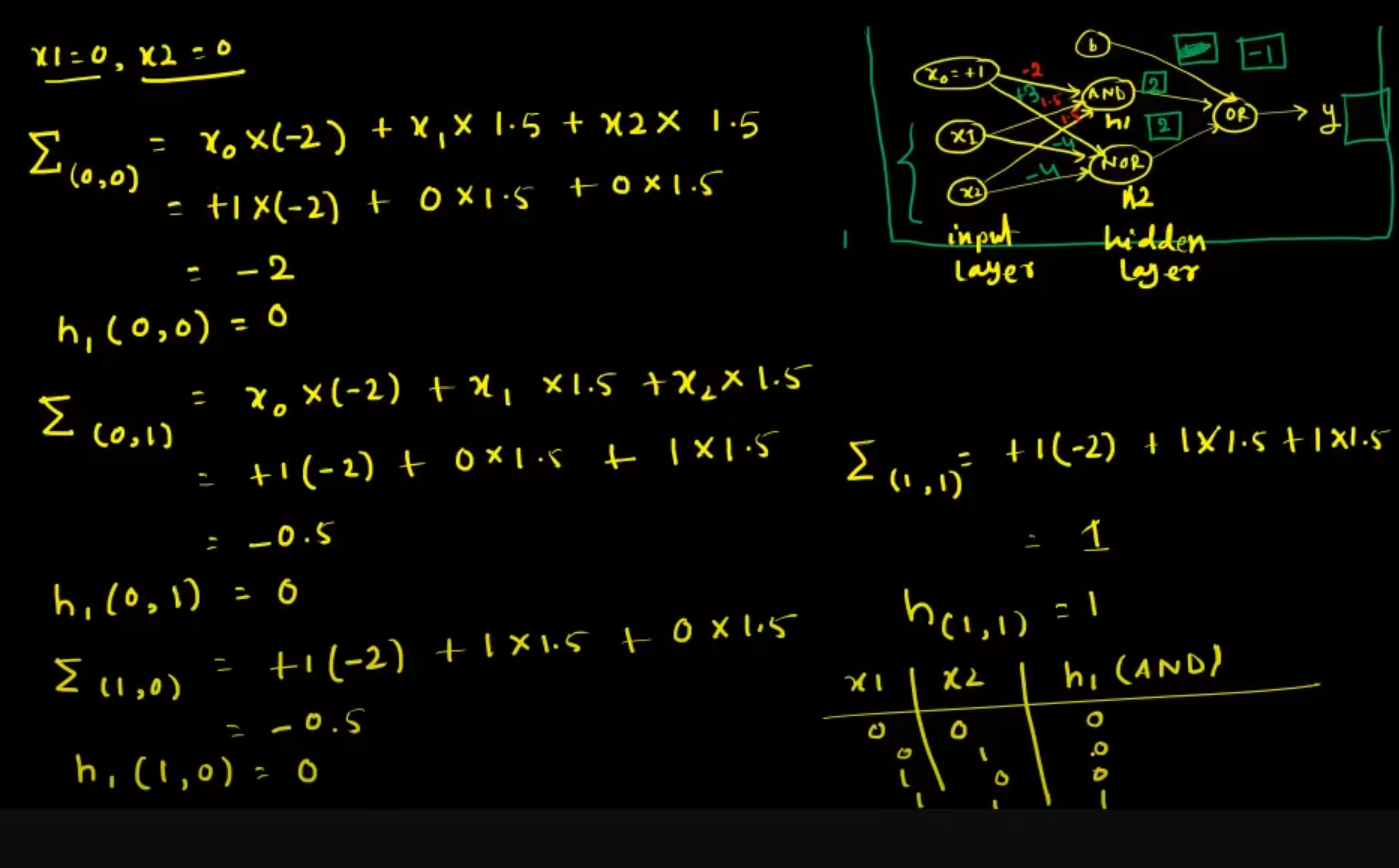 x1=0, x2=0
Σ(0,0) = x₀×(-2) + x₁× 1.5 + x2× 1.5
= +1×(-2) + 0×1.5 + 0×1.5
= -2
h₁(0,0) = 0
Σ(0,1) = x₀×(-2) + x₁ ×1.5 +x₂×1.5
= +1(-2) + 0×1.5 + 1×1.5
= -0.5
h₁(0,1) = 0
Σ(1,0) = +1(-2) + 1×1.5 + 0×1.5
= -0.5
h₁(1,0) = 0
b
-1
x₀=+1
-2
+3
1.5
AND
2
h1
1.5
OR
y
x1
2
-4
NOR
x2
-4
h2
input
layer
hidden
layer
1
Σ(1,1) = +1(-2) + 1×1.5 + 1×1.5
= 1
h(1,1) = 1
x1 | x2 | h₁ (AND)
0 0 0
0 1 0
1 0 0
1 1 1